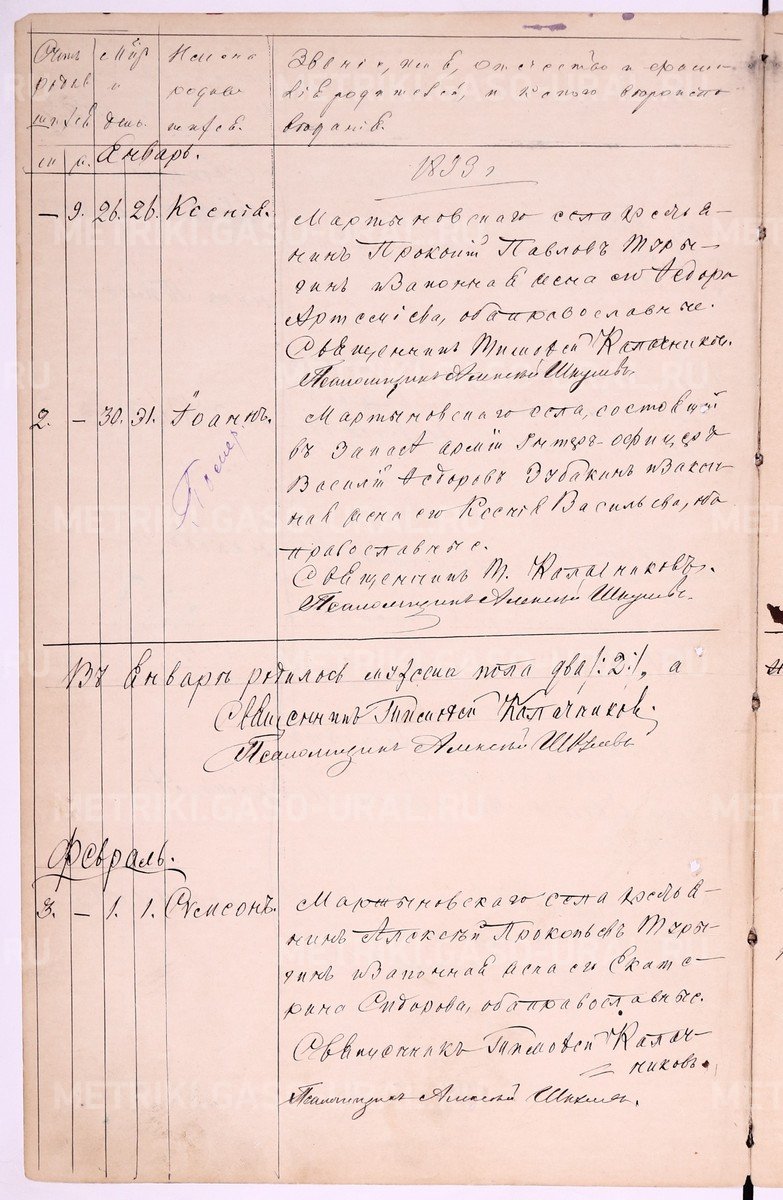 Счетъ родившихся
Мѣс. и день.
Имена родив-
шихся.
Званіе, имя, отчество и фами-
лія родителей, и какого вѣроиспо-
вѣданія.
м. ж. Январь.
1893 г
— 9. 26. 26. Ксенія.
Мартыновскаго села крестья-
нинъ Прокопій Павловъ Туры-
гинъ и законная жена его Ѳедора
Артеміева, оба православные.
Священникъ Тимоѳей Калачниковъ.
Псаломщикъ Алексѣй
2. — 30. 31. Іоаннъ.
Помер
Мартыновскаго села, состоящій
въ запасѣ арміи унтеръ-офицеръ
Василій Ѳедоровъ Зубакинъ и закон-
ная жена его Ксенія Васильева, оба
православные.
Священникъ Т. Калачниковъ.
Псаломщикъ Алексѣй
Въ Январѣ родилось мужеска пола два /:2:/, а
Священникъ Тимоѳей Калачниковъ.
Псаломщикъ Алексѣй
Февраль.
3. — 1. 1. Сѵмеонъ.
Мартыновскаго села крестья-
нинъ Алексѣй Прокопьевъ Туры-
гинъ и законная жена его Екате-
рина Сидорова, оба православные.
Священникъ Тимоѳей Калач-
никовъ.
Псаломщикъ Алексѣй
METRIKI.GASO-URAL.RU